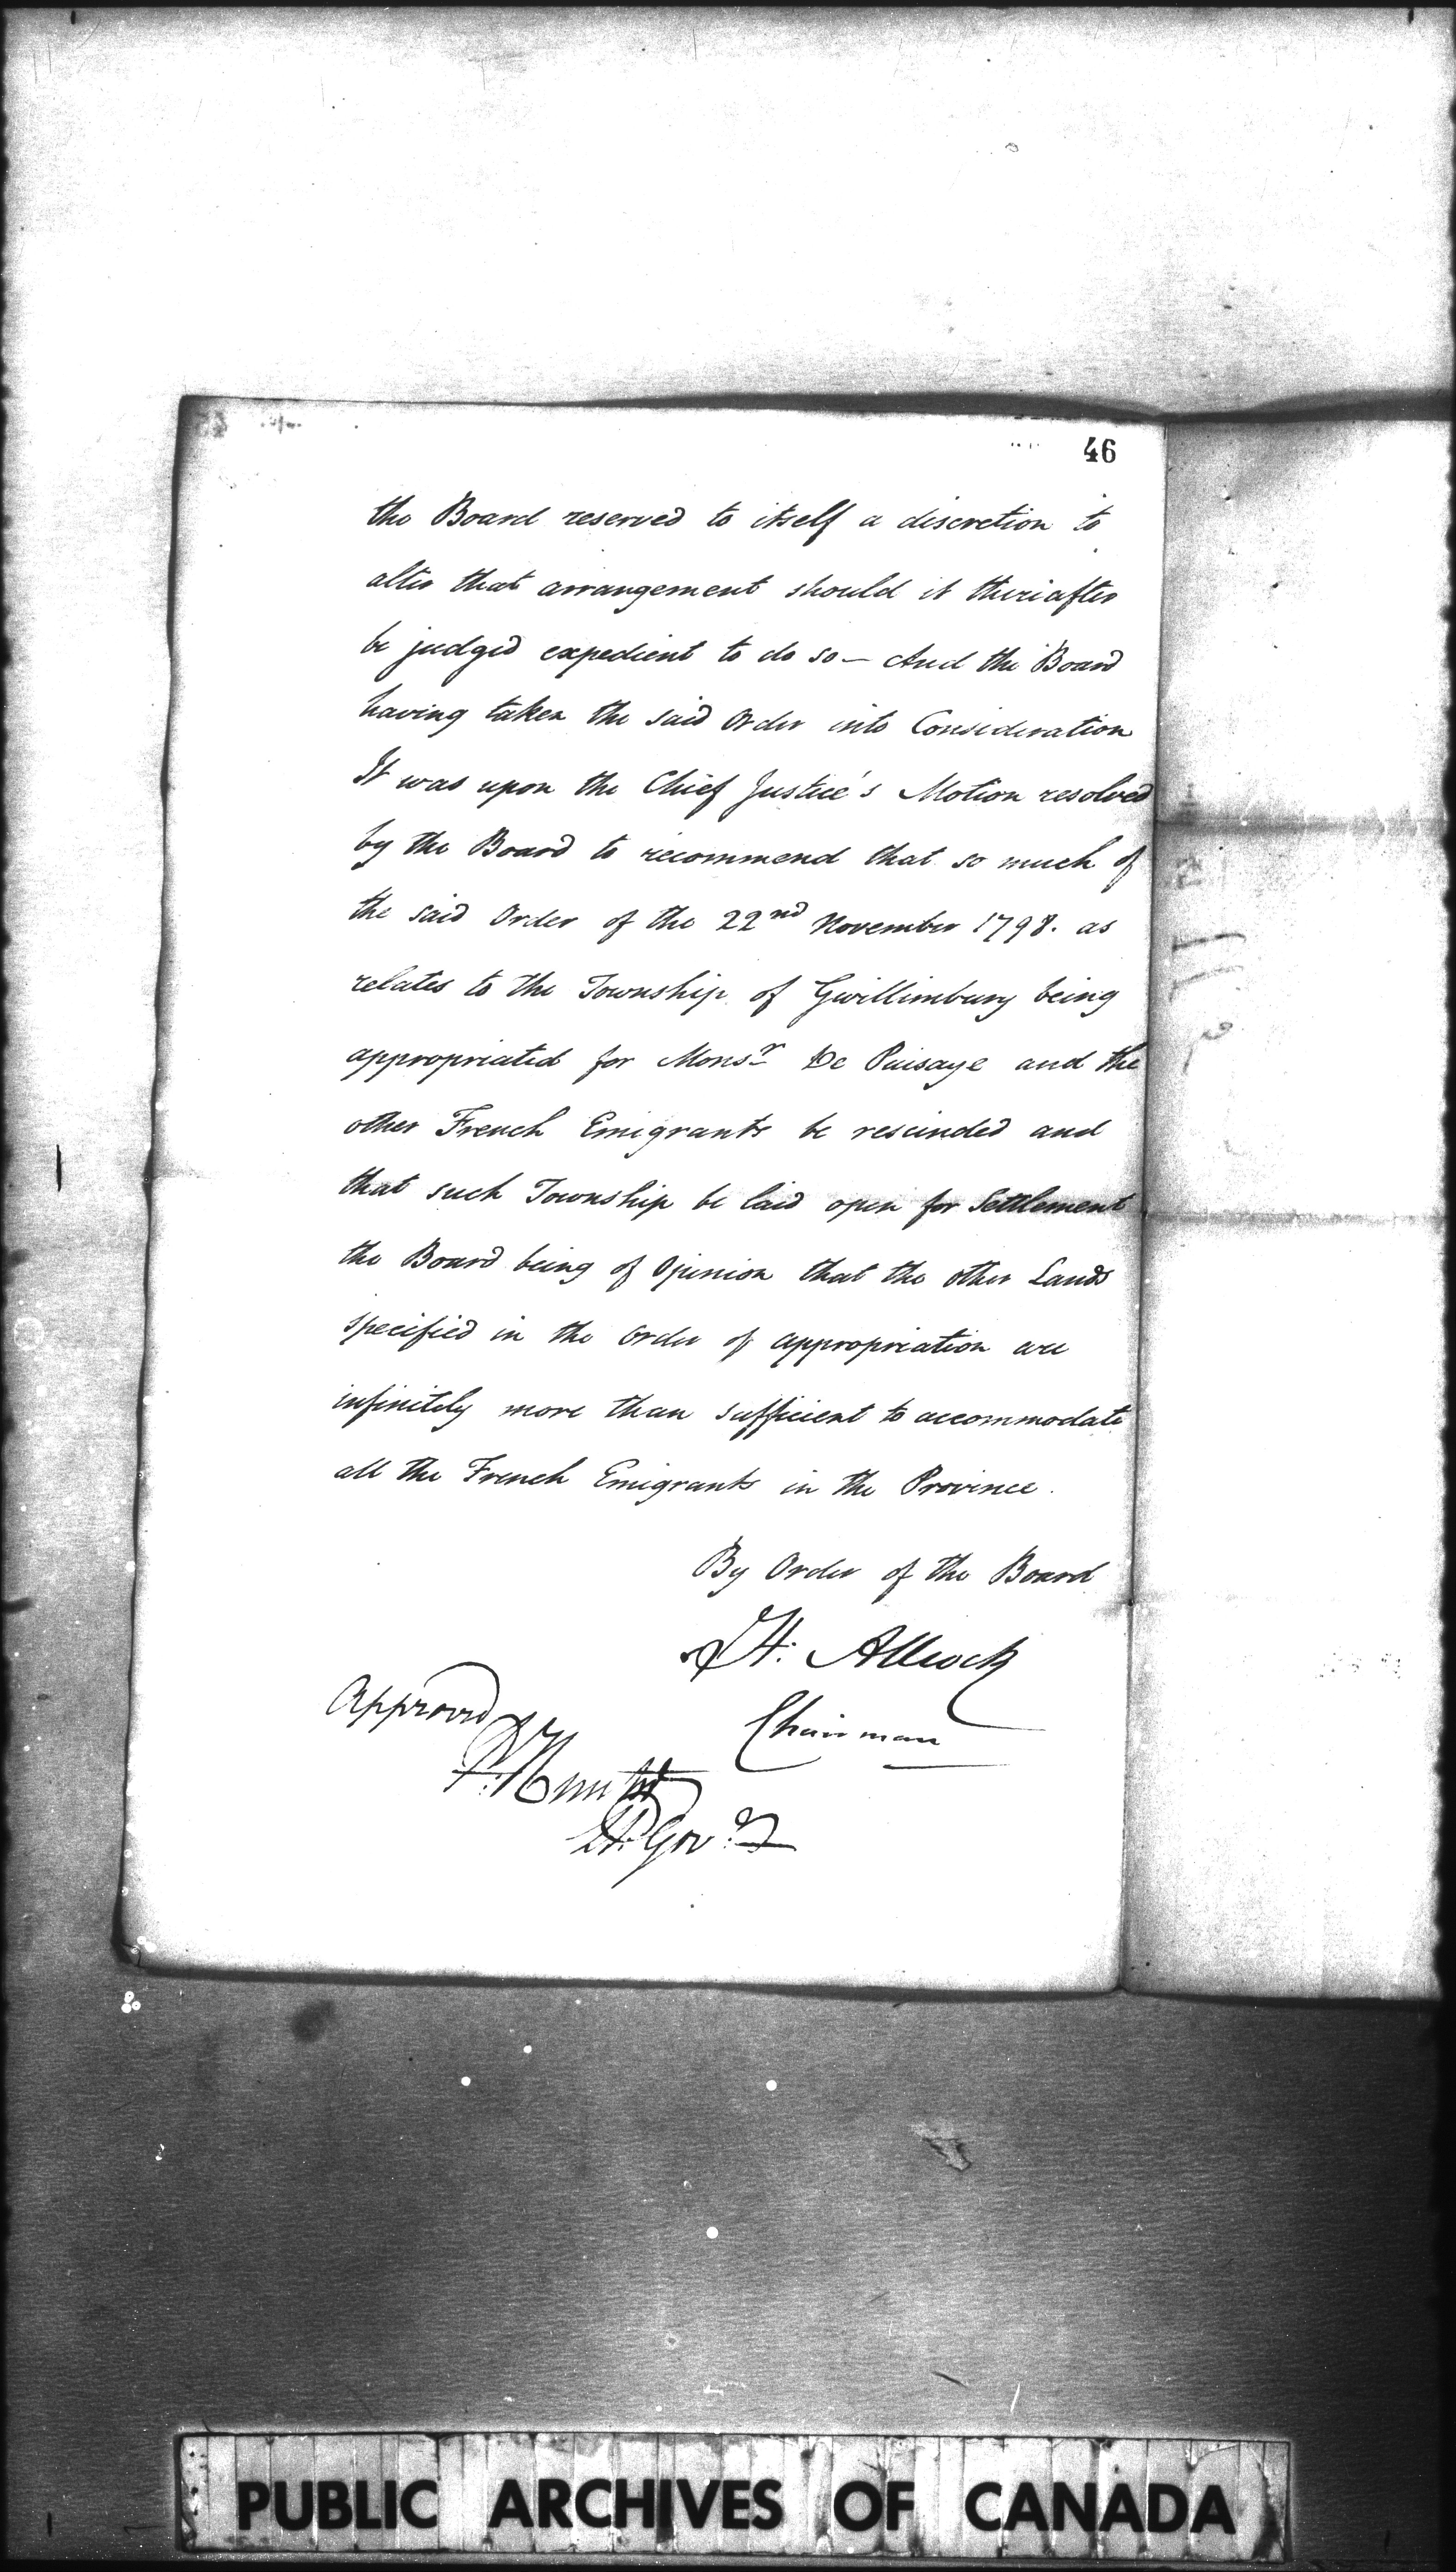 46
the Board reserved to itself a discretion to
alter that arrangement should it thereafter
be judged expedient to do so — And the Board
having taken the said Order into Consideration
It was upon the Chief Justice's Motion resolved
by the Board to recommend that so much of
the said Order of the 22nd November 1798. as
relates to the Township of Gwillimbury being
appropriated for Monsr De Puisaye and the
other French Emigrants be rescinded and
that such Township be laid open for Settlement
the Board being of Opinion that the other Lands
specified in the Order of appropriation are
infinitely more than sufficient to accommodate
all the French Emigrants in the Province.
By Order of the Board
H: Allcock
Chairman
Approved
P. Hunter
Lt. Govr.
PUBLIC ARCHIVES OF CANADA